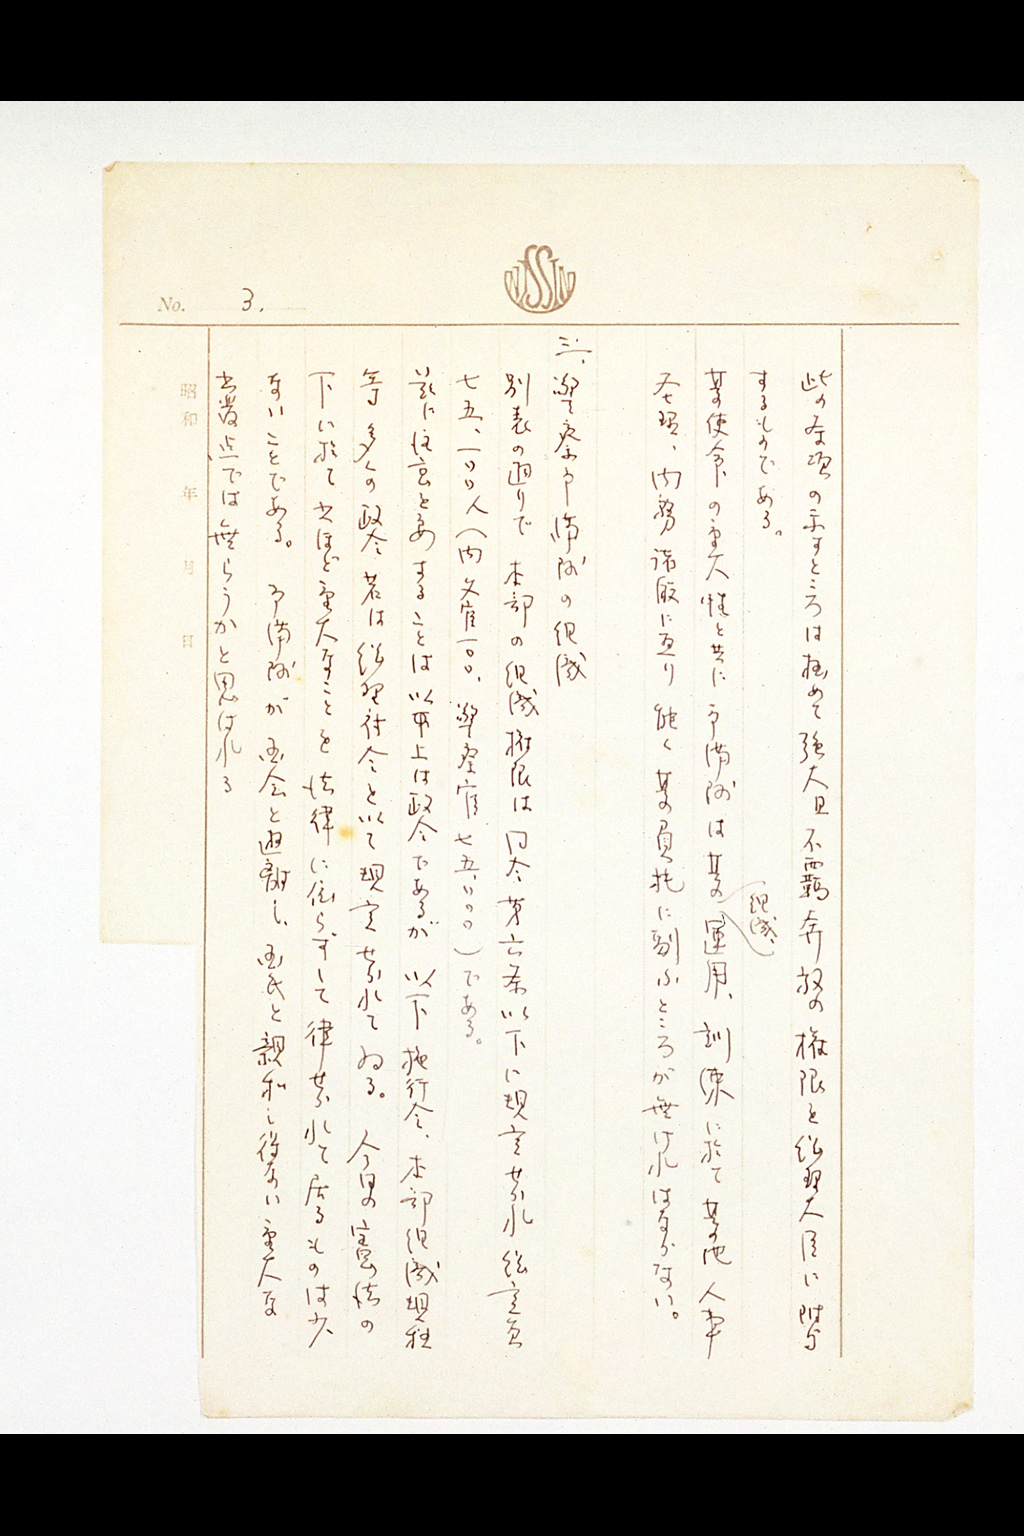 NISSIN
No. 3.
此の条項の示すところは極めて強大且不羈奔放の権限を総理大臣に附与
するものである。
其の使命の重大性と共に予備隊は其の組織、運用、訓練に於て其の他人事
管理、内務諸般に亘り能く其の負托に副ふところが無ければならない。
三、警察予備隊の組織
別表の通りで 本部の組織権限は同令第六条以下に規定せられ総定員
七五、一〇〇人(内文官一〇〇、警察官七五、〇〇〇)である。
茲に注意を要することは以上は政令であるが 以下施行令、本部組織規程
等多くの政令若は総理府令を以て規定せられてゐる。今日の憲法の
下に於て はほど重大なことを法律に依らずして律せられて居るものは少
ないことである。予備隊が国会と遊離し、国民と親和し得ない重大な
点では無らうかと思はれる
昭和 年 月 日